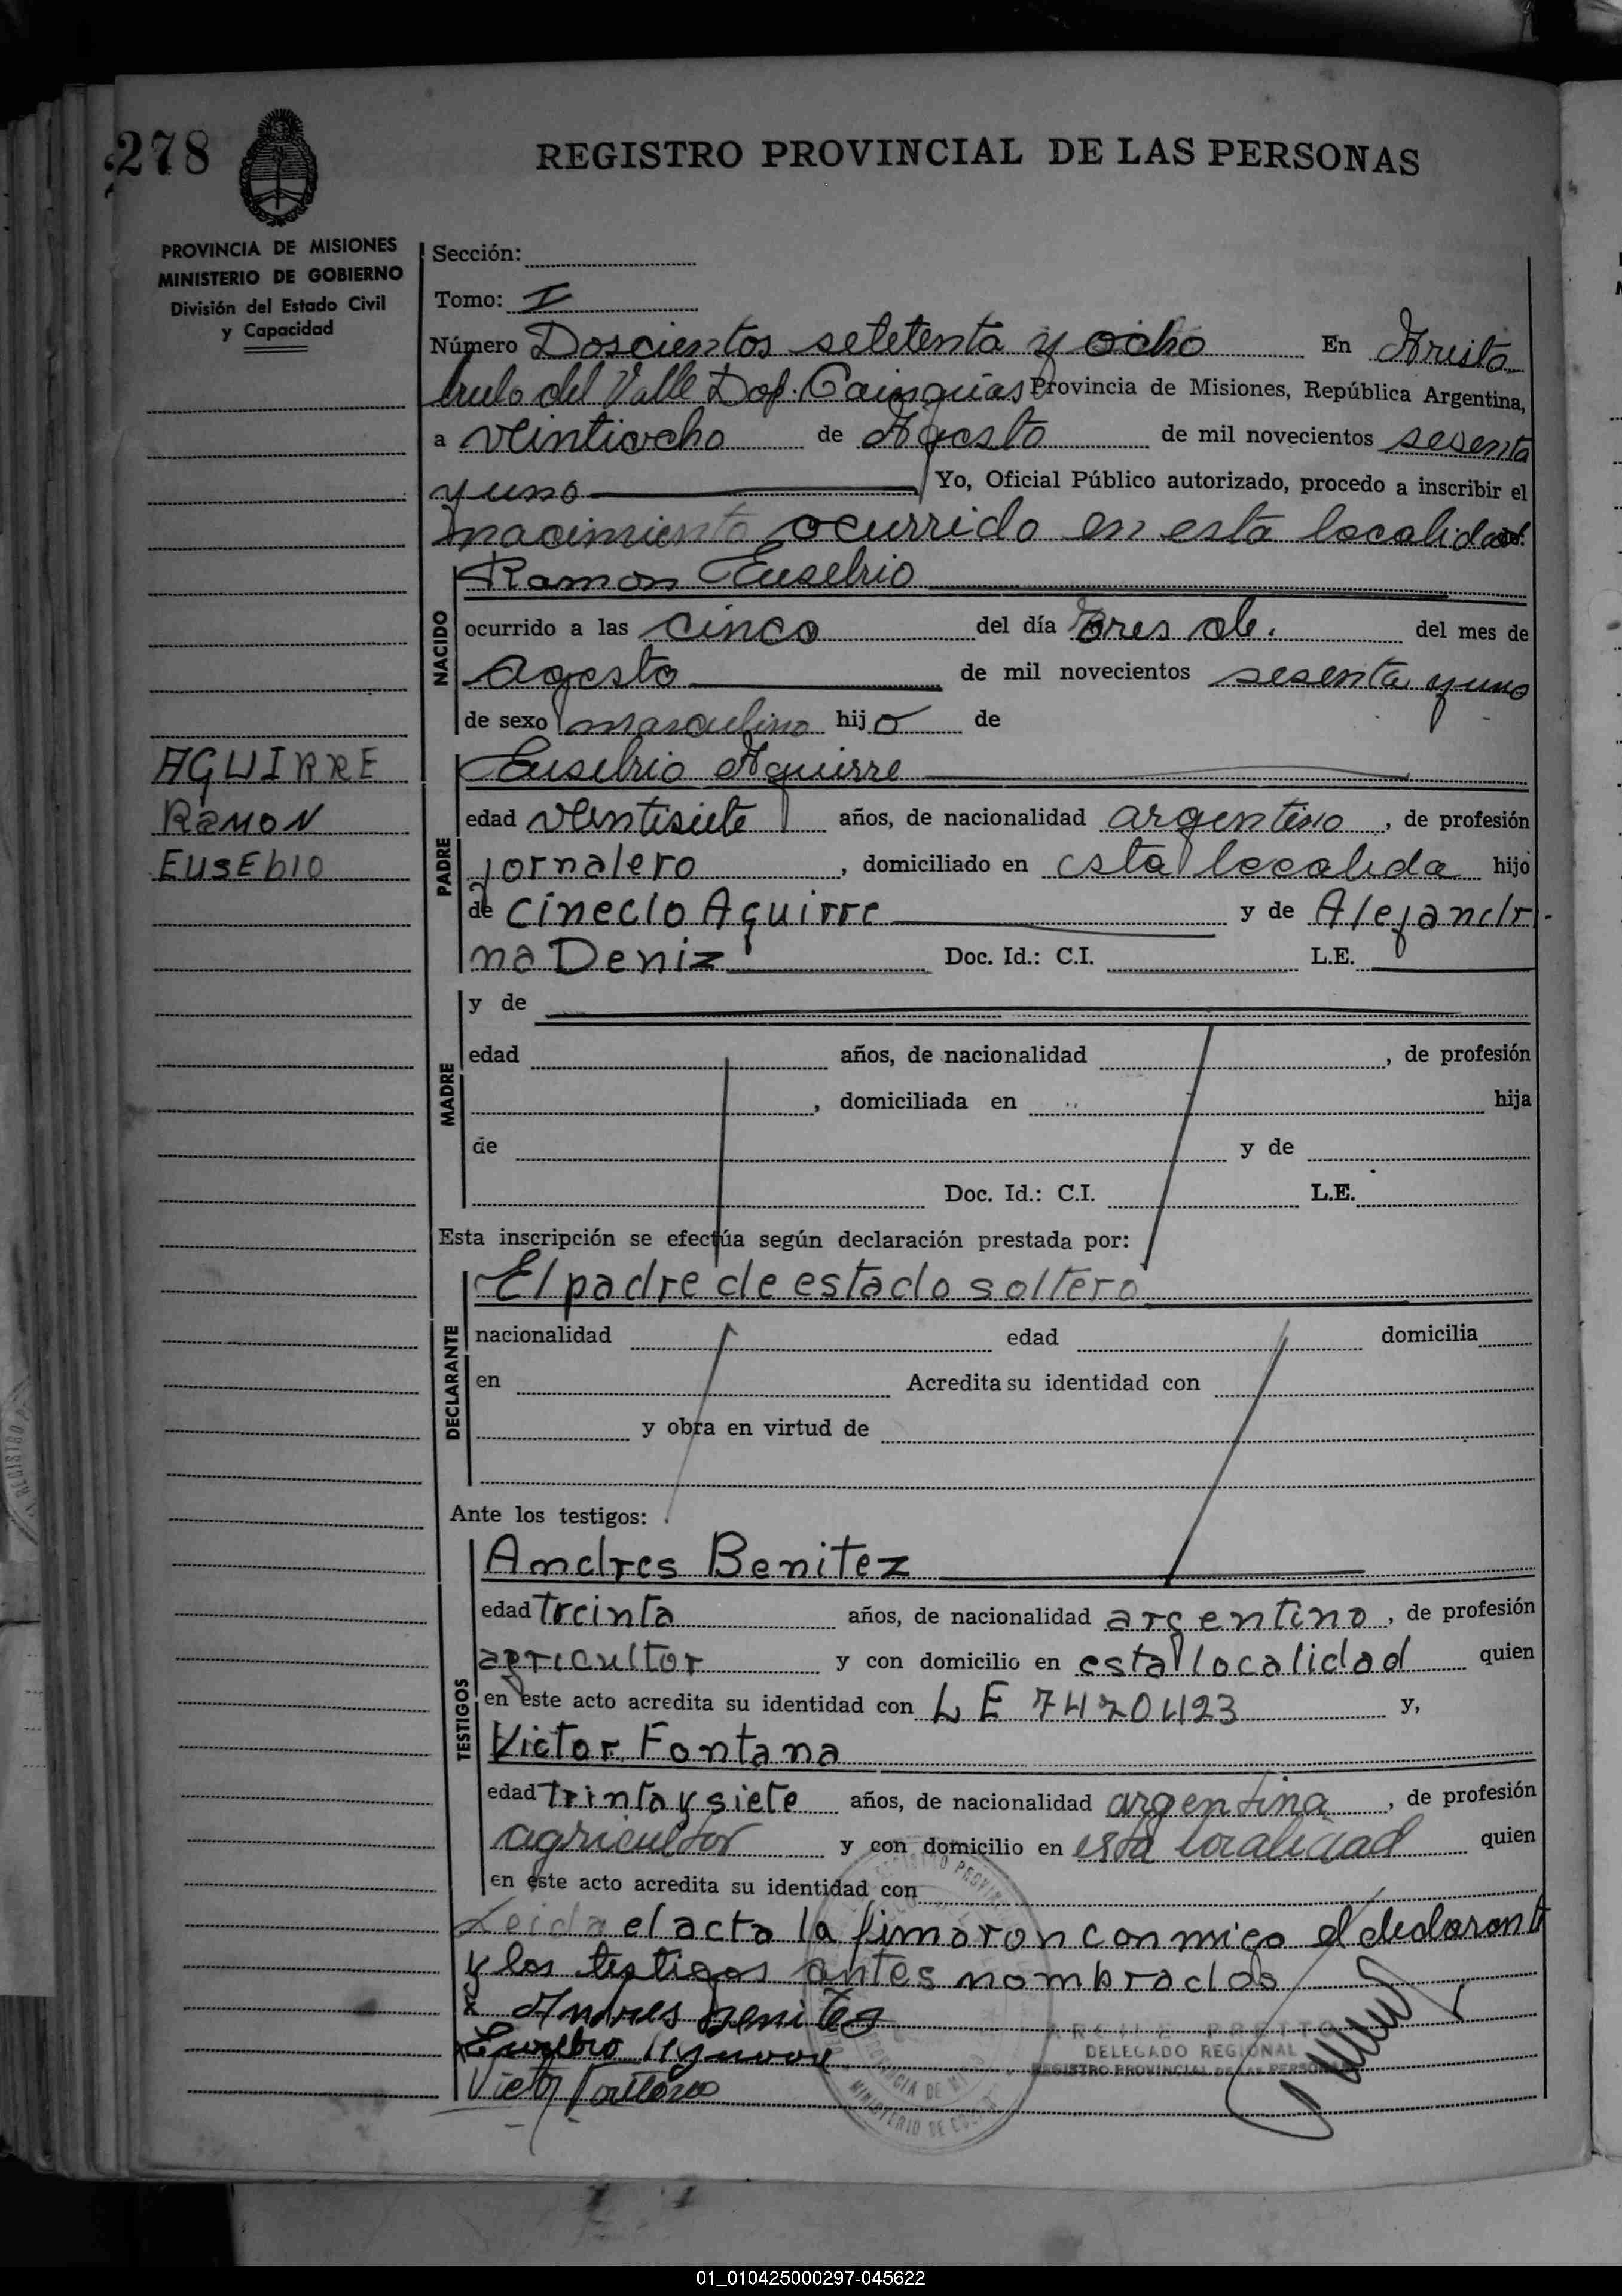 278
REGISTRO PROVINCIAL DE LAS PERSONAS
PROVINCIA DE MISIONES
MINISTERIO DE GOBIERNO
División del Estado Civil
y Capacidad
Sección:
Tomo: I
Número Doscientos setetenta y ocho En Aristo
bulo del Valle Dop. Cainguas Provincia de Misiones, República Argentina,
a veintiocho de Agosto de mil novecientos sesenta
y uno Yo, Oficial Público autorizado, procedo a inscribir el
nacimiento ocurrido en esta localidad.
NACIDO
Ramon Eusebio
ocurrido a las cinco del día Tres de. del mes de
Agosto de mil novecientos sesenta y uno
de sexo masculino hijo de
AGUIRRE
RAMON
EUSEbIO
PADRE
Eusebio Aguirre
edad veintisiete años, de nacionalidad argentino, de profesión
jornalero, domiciliado en esta localida hijo
de cineclo Aguirre y de Alejandr
na Deniz Doc. Id.: C.I. L.E.
MADRE
y de
edad años, de nacionalidad , de profesión
, domiciliada en hija
de y de
Doc. Id.: C.I. L.E.
Esta inscripción se efectúa según declaración prestada por:
DECLARANTE
El padre de estado soltero
nacionalidad edad domicilia
en Acredita su identidad con
y obra en virtud de
Ante los testigos:
TESTIGOS
Andres Benitez
edad treinta años, de nacionalidad argentino, de profesión
agricultor y con domicilio en esta localidad quien
en este acto acredita su identidad con L E 7470423 y,
Victor Fontana
edad trinta y siete años, de nacionalidad argentina, de profesión
agricultor y con domicilio en esta localidad quien
en este acto acredita su identidad con
Leida el acta la fimaron conmigo el declarante
y los testigos antes nombrados
x Andres Benitez
x Eusebio Aguirre
Victor Fontana
DELEGADO REGIONAL
REGISTRO PROVINCIAL DE LAS PERSONAS
01_010425000297-045622